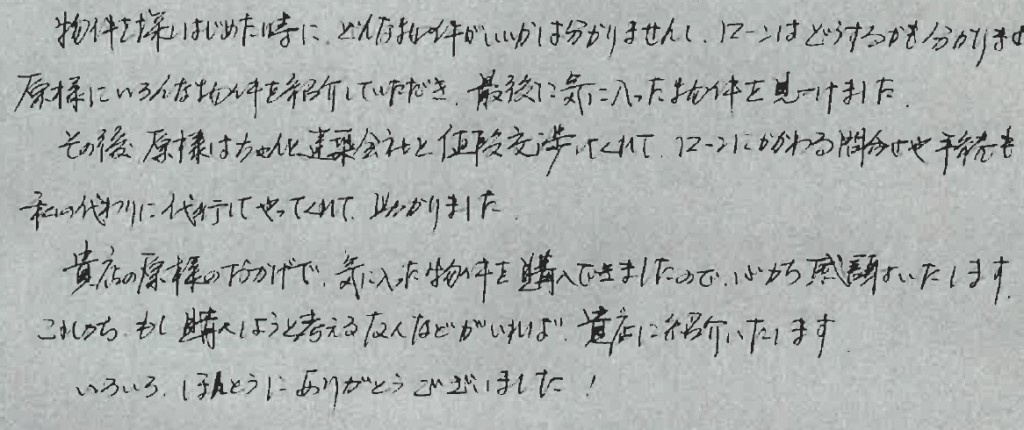 物件を探しはじめた時に、どんな物件がいいかは分かりませんし、ローンはどうするかも分かりませ
原様にいろんな物件を紹介していただき、最後に気に入った物件を見つけました。
その後、原様はちゃんと建築会社と値段交渉してくれて、ローンにかかわる問合せや手続も
私の代わりに代行してやってくれて、助かりました。
貴店の原様のおかげで、気に入った物件を購入できましたので、心から感謝いたします。
これから、もし購入しようと考える友人などがいれば、貴店に紹介いたします
いろいろ、ほんとうにありがとうございました！